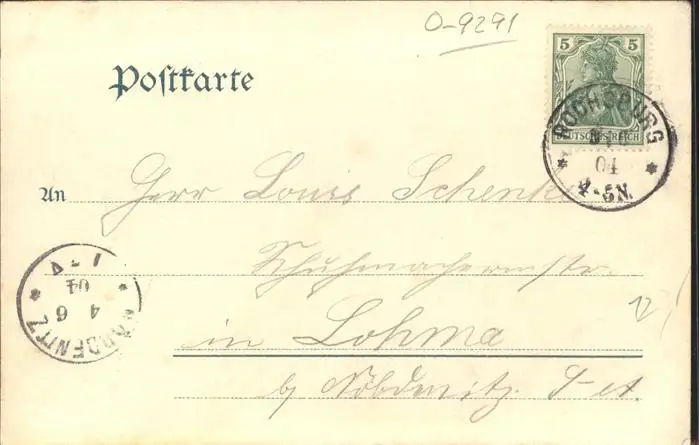 O-9291
Postkarte
5 5
DEUTSCHES REICH
ROCHSBURG
04
4-5N.
An Herr Louis Schenke
Schuhmachermstr.
in Lohma
b/ Nöbdenitz. S-A.
NÖBDENITZ
4 6
04